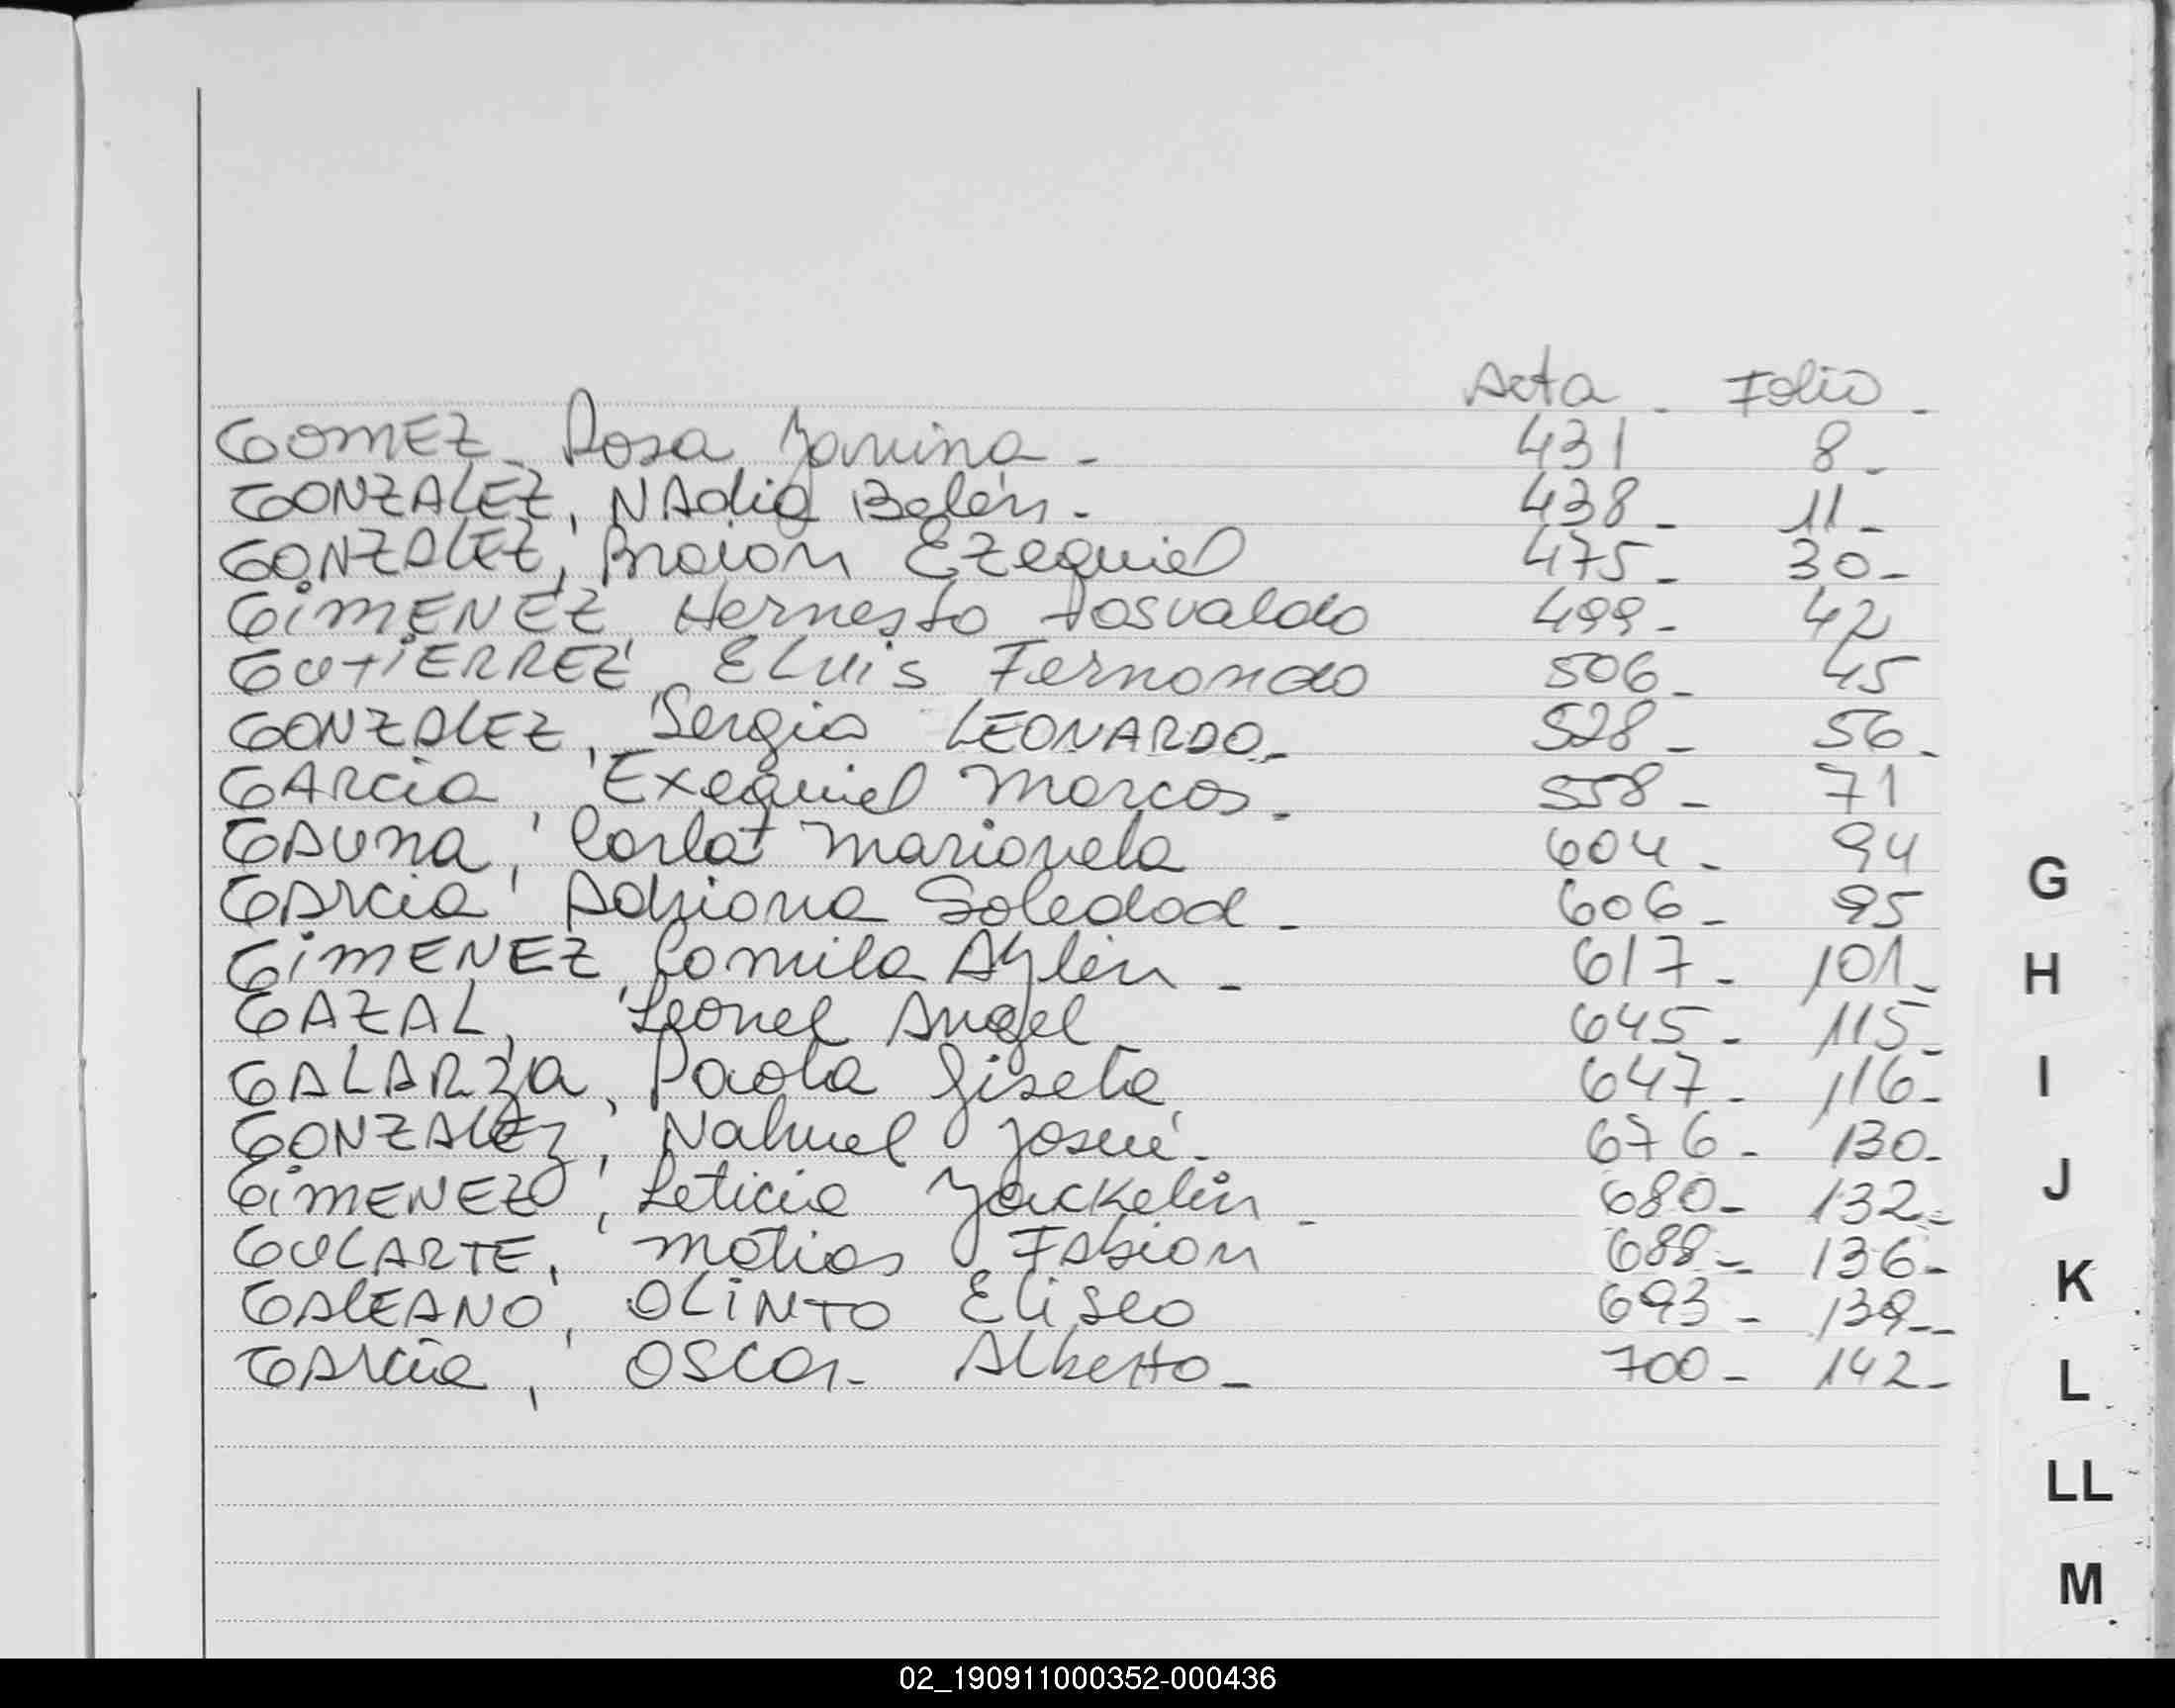 Acta - Folio -
GOMEZ, Rosa Yanina - 431 8 -
GONZALEZ, NAdia Belén - 438 - 11 -
GONZALEZ, Braian Ezequiel 475 - 30 -
GiMENEZ Hernesto Hosvaldo 499 - 42
GUTiERREZ, ELvis Fernando 506 - 45
GONZALEZ, Sergio LEONARDO - 528 - 56 -
GARcia, Exequiel Marcos - 558 - 71
GAUna, Carla Marianela 604 - 94
GARcia, Adriana Soledad - 606 - 95
GiMENEZ, Camila Aylén - 617 - 101 -
GAZAL, Leonel Angel 645 - 115 -
GALARza, Paola Gisela 647 - 116 -
GONZALEz, Nahuel Josué - 676 - 130 -
GiMENEZ, Leticia Yackelin - 680 - 132 -
GULARTE, Matias Fabian 688 - 136 -
GALEANO, OLiNTO Eliseo 693 - 139 -
GARcia, OSCar - Alberto - 700 - 142 -
G
H
I
J
K
L
LL
M
02_190911000352-000436